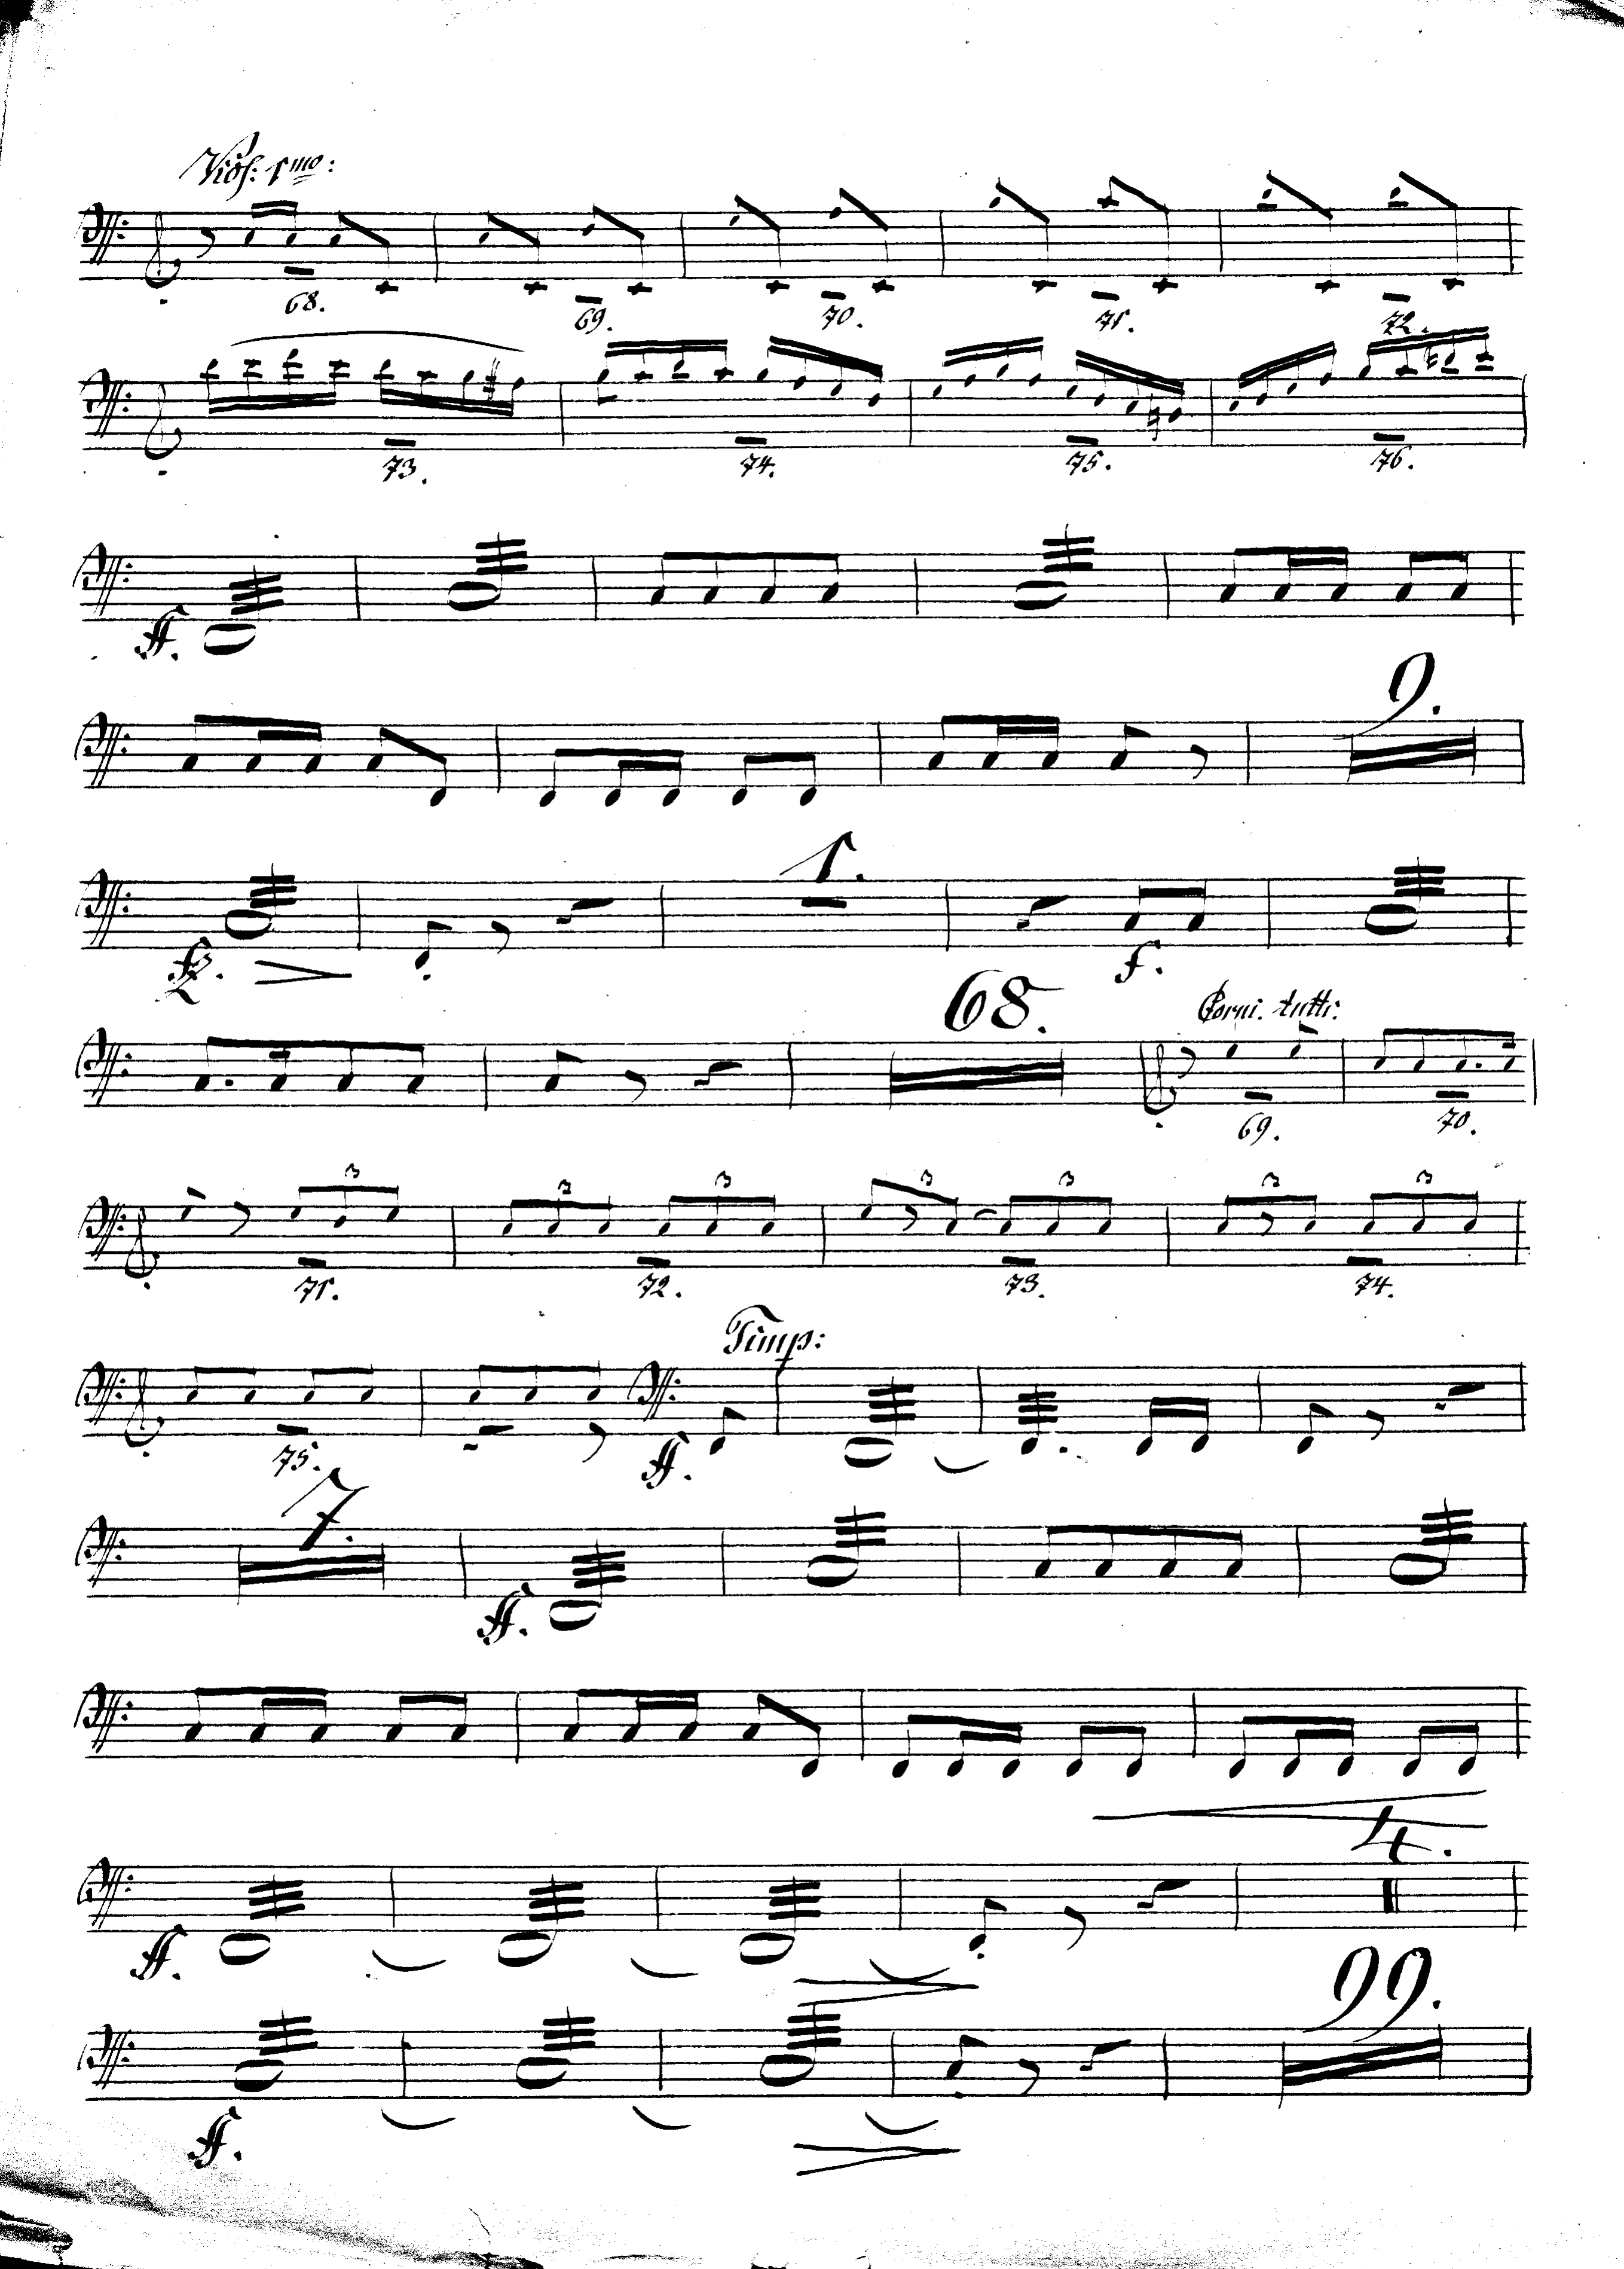 Viol: 1mo:
68. 69. 70. 71. 72.
73. 74. 75. 76.
ff.
9.
1.
f.
68. Corni. tutti:
69. 70.
3 3 3 3 3 3 3
71. 72. 73. 74.
Timp:
75. ff.
7.
ff.
4.
ff.
99.
ff.